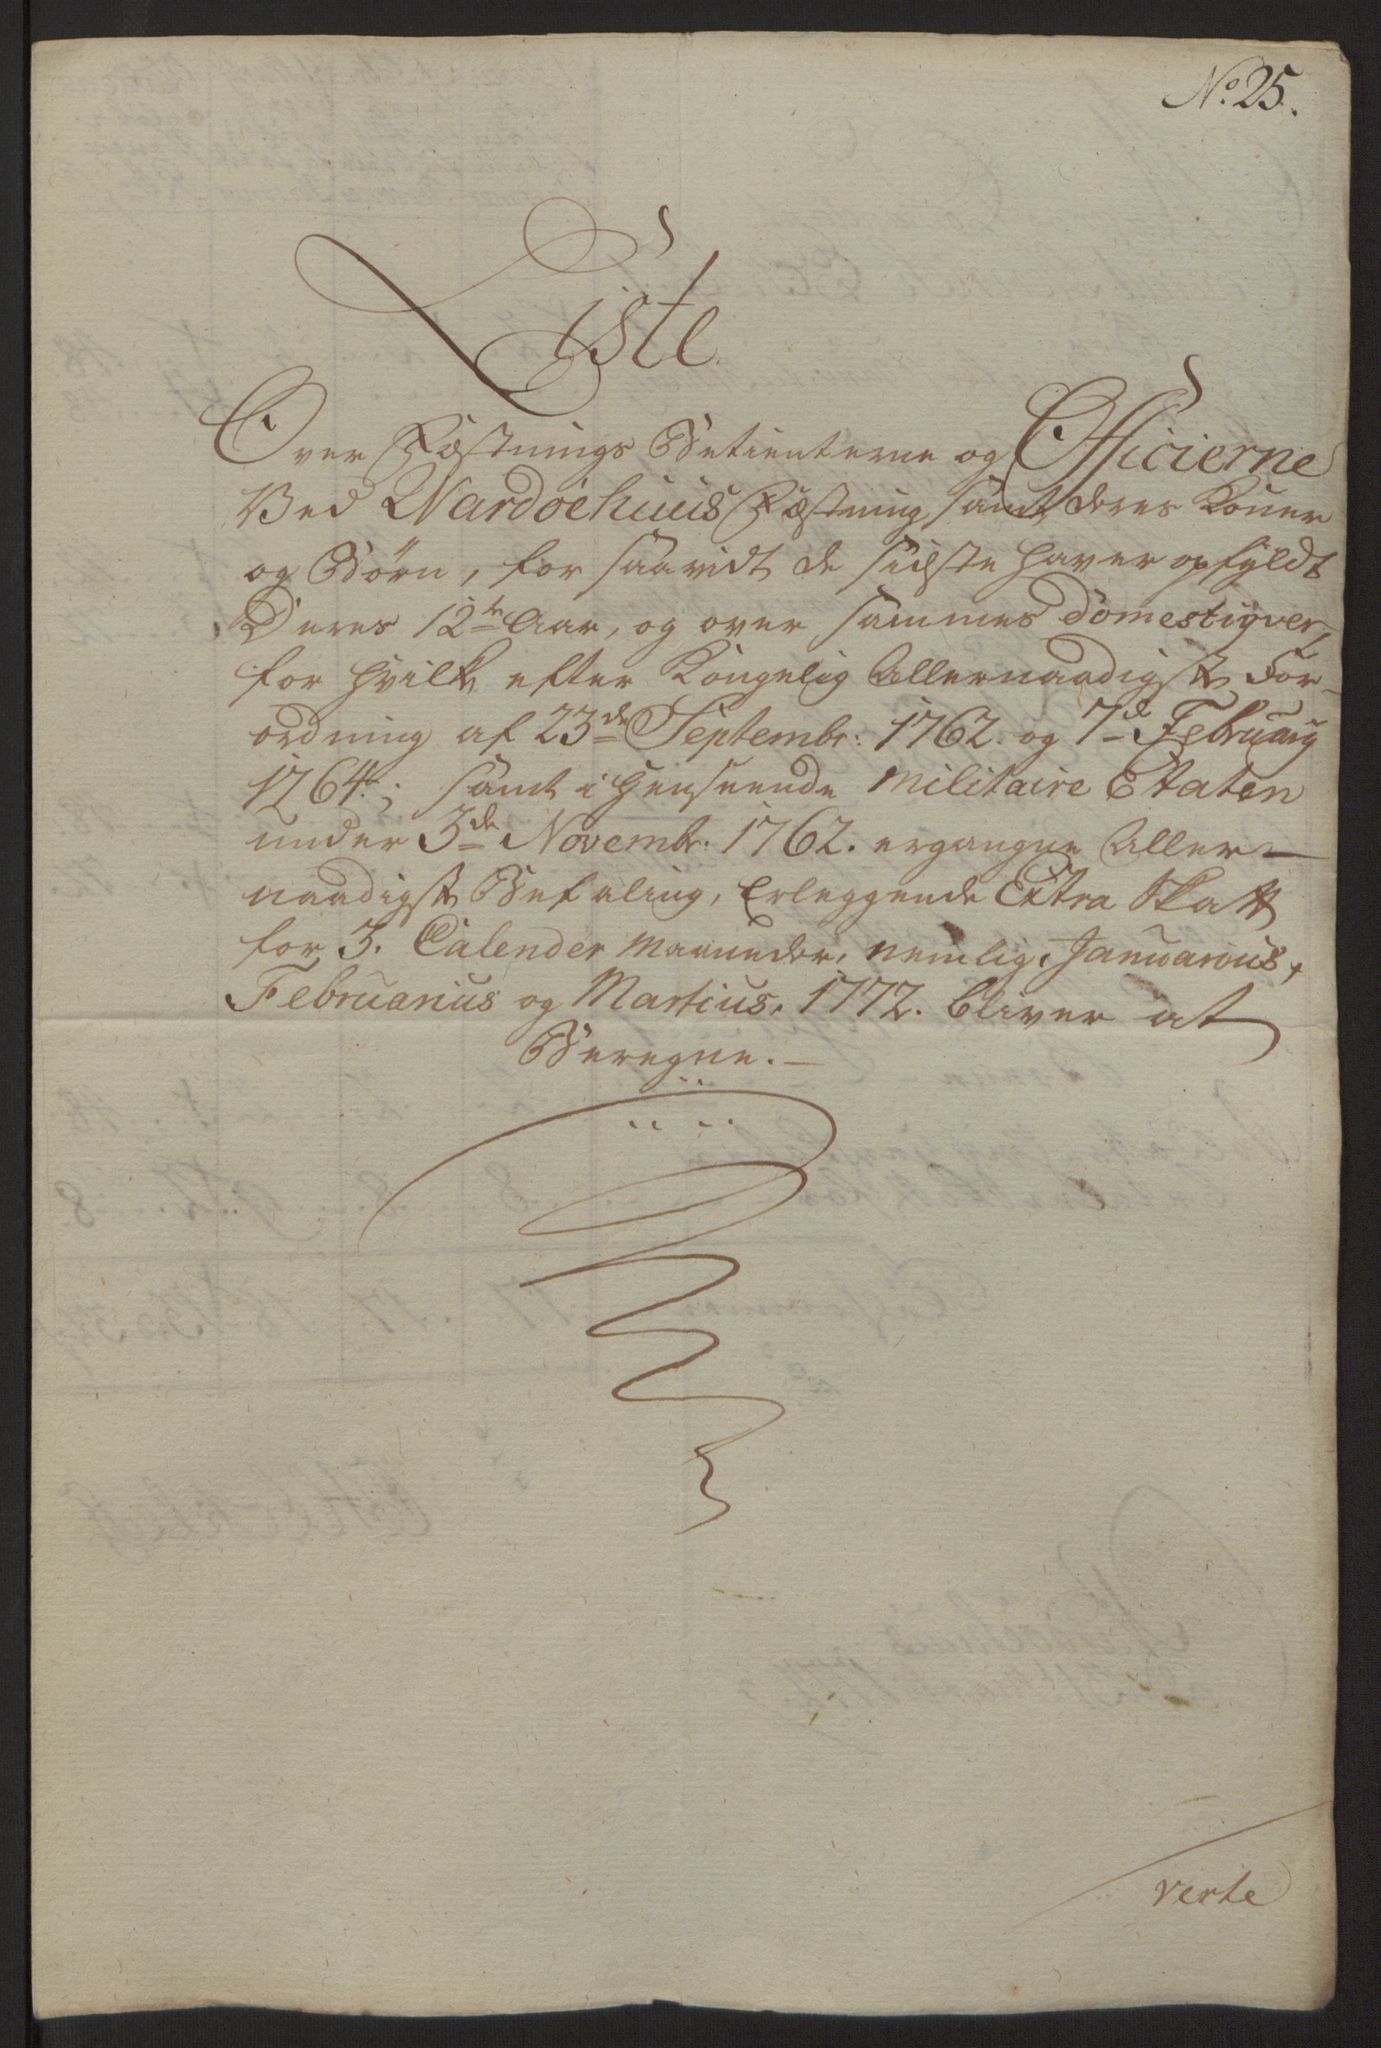 No. 25.
Liste
Over Fæstnings Betienterne og Officierne
Ved Wardöehuus Fæstning, samt deres Koner
og Börn, for saavidt de sidste haver opfyldt
Deres 12te Aar, og over sammes Domestiqver,
for hvilke efter Kongelig Allernaadigste For-
ordning af 23de Septembr: 1762. og 7de February
1764.; samt i henseende Militaire Etaten
under 3de Novembr: 1762. ergangne Aller-
naadigste Befaling, Erleggende Extra Skatt
for 3. Calender Maaneder, nemlig, Januarius,
Februarius og Martius, 1772. bliver at
Beregne.
verte